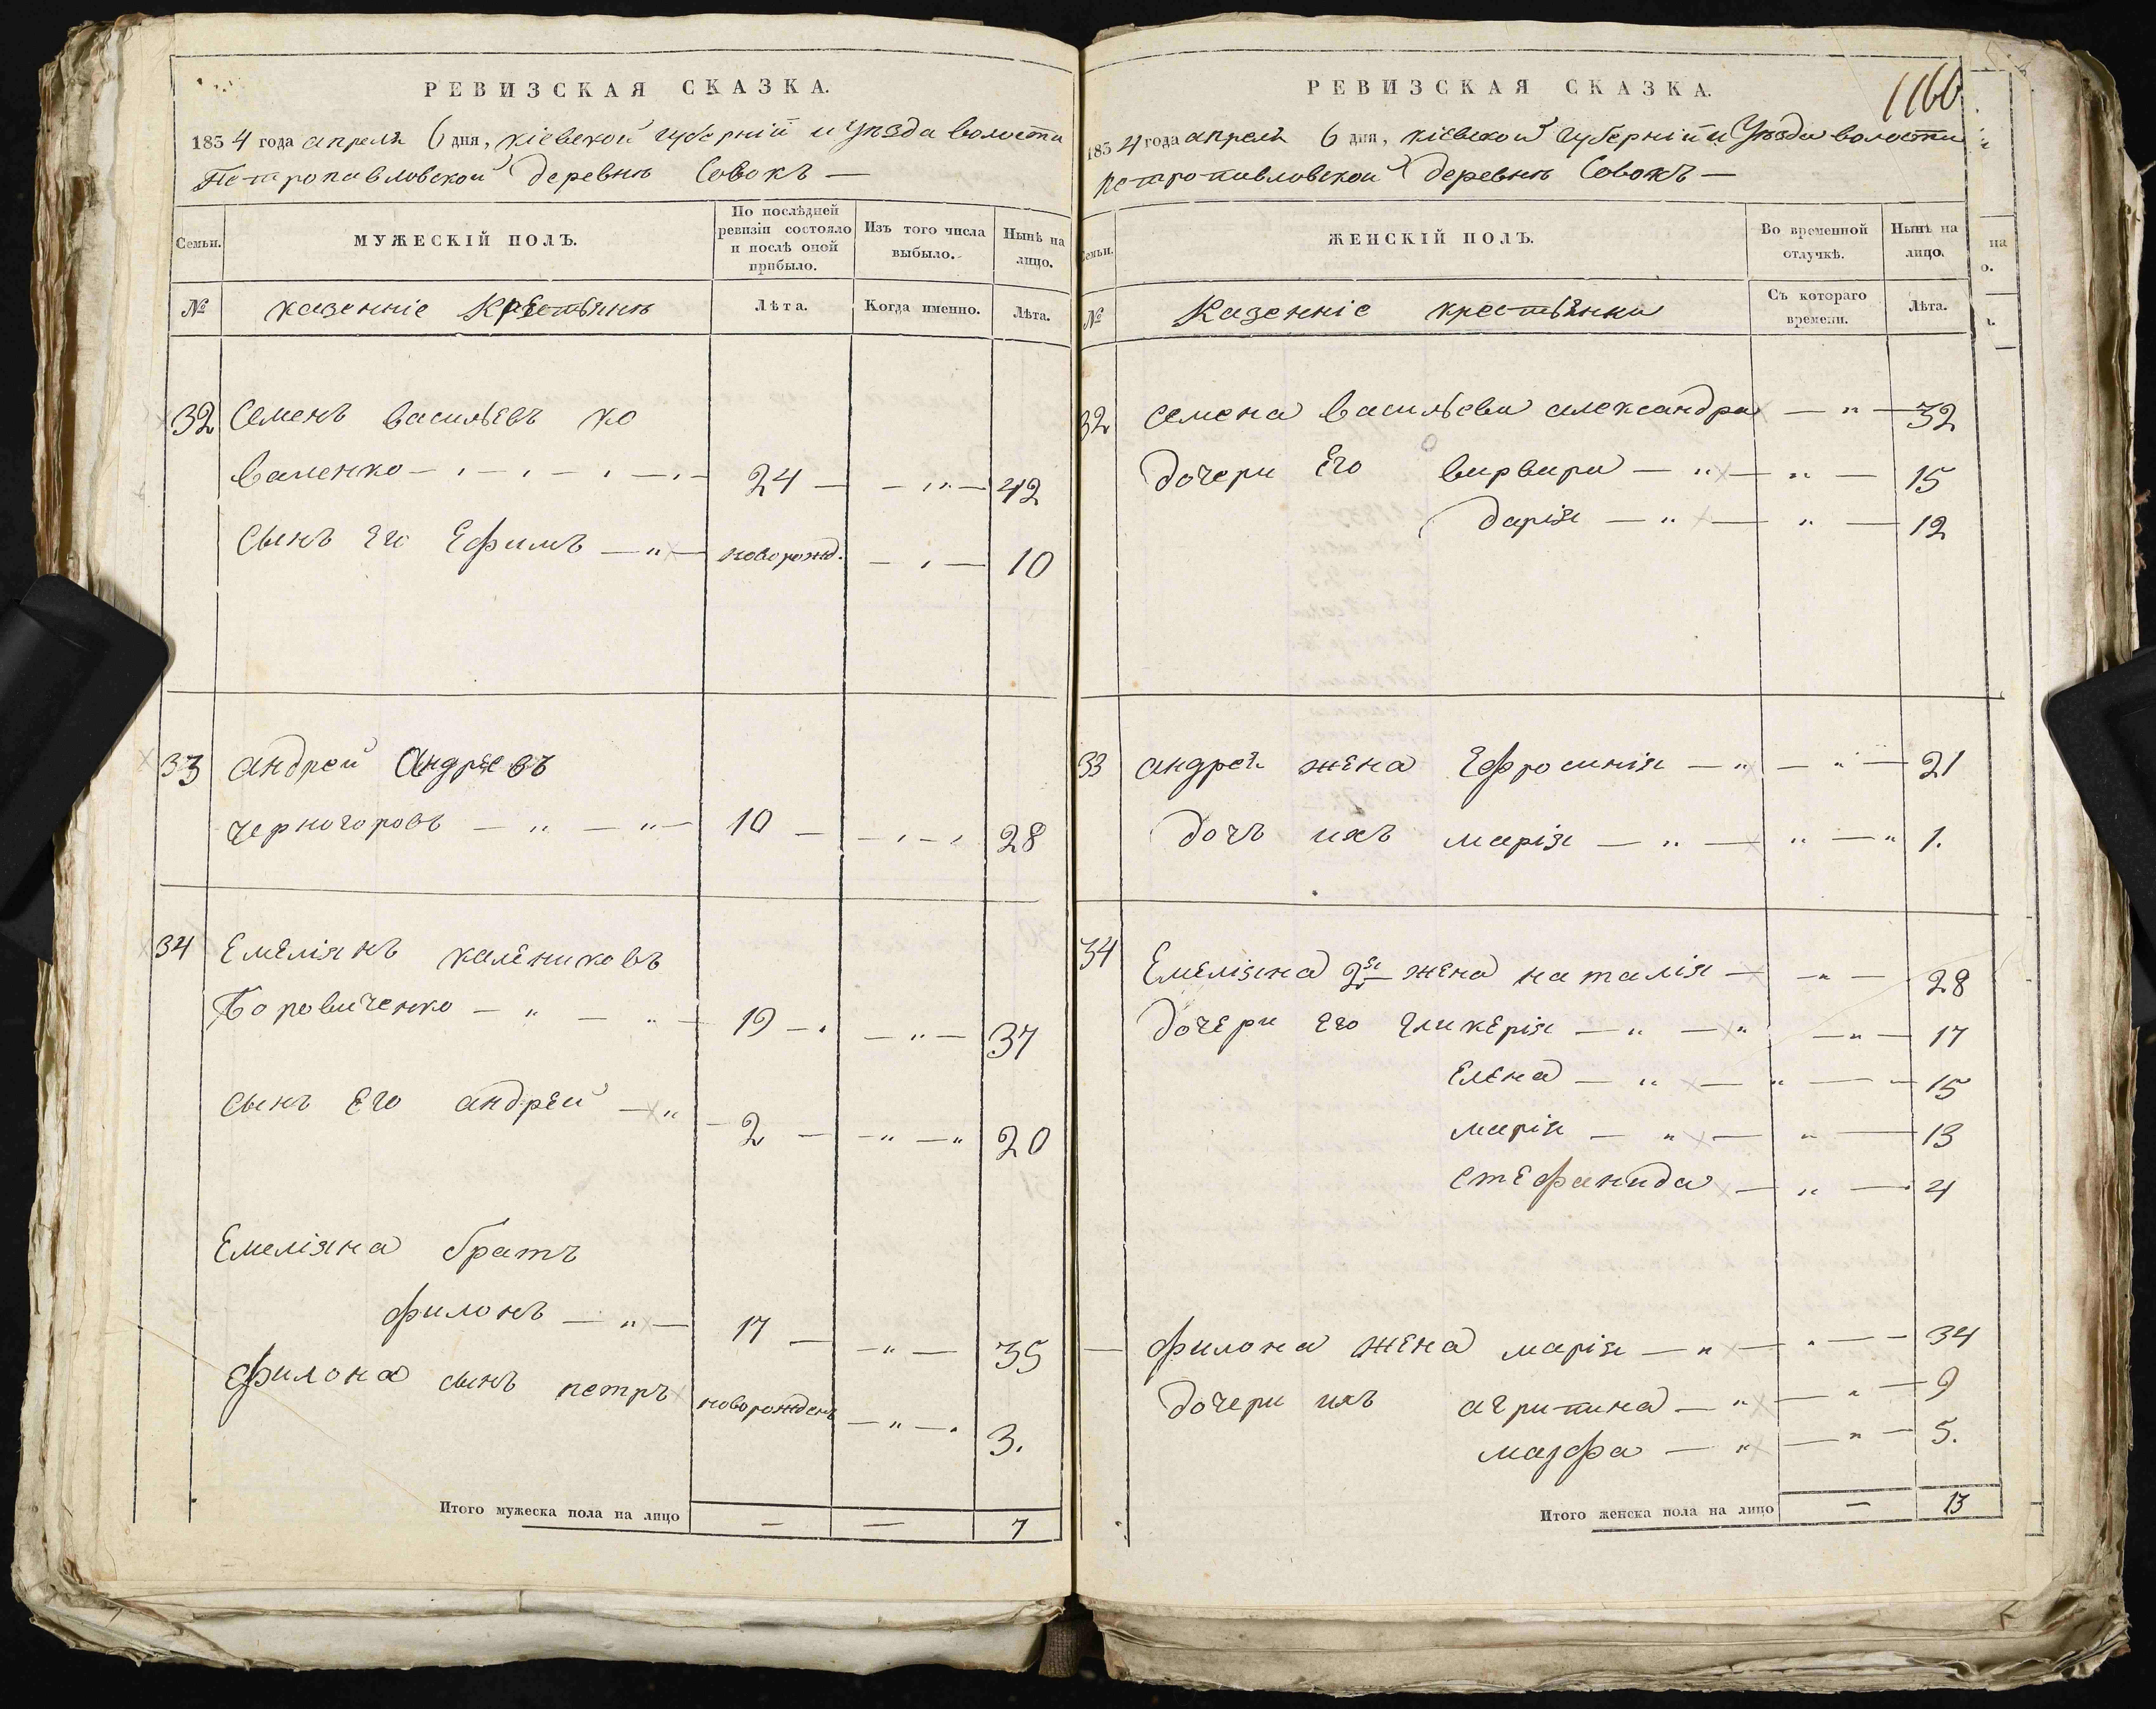 РЕВИЗСКАЯ СКАЗКА.
1854 года апреля 6 дня, Кіевской губерніи и Уезда волости
Петропавловской деревни Совокъ —
Семьи.
МУЖЕСКІЙ ПОЛЪ.
По послѣдней ревизіи состояло и послѣ оной прибыло.
Изъ того числа выбыло.
Нынѣ на лицо.
№
казенніе Крестьяне
Лѣта.
Когда именно.
Лѣта.
32 Семенъ васильевъ ко
валенко — 24 — — „ — 42
Сынъ Его Ефимъ — „ — новорожд. — „ — 10
33 андрей Андреевъ
черногоровъ — „ — „ — 10 — — „ — „ 28
34 Емеліянъ калениковъ
Боровиченко — „ — „ — 19 — — „ — 37
сынъ Его андрей — „ — 2 — — „ — „ 20
Емеліяна братъ
филонъ — „ — 17 — — „ — 35
филона сынъ петръ новорожденъ — „ — 3.
Итого мужеска пола на лицо — — 7
1166
РЕВИЗСКАЯ СКАЗКА.
1854 года апреля 6 дня, Кіевской Губерніи и Уезда волости
петропавловской деревни Совокъ —
Семьи.
ЖЕНСКІЙ ПОЛЪ.
Во временной отлучкѣ.
Нынѣ на лицо.
№
Казенніе крестьянки
Съ котораго времени.
Лѣта.
32 Семена васильева александра — „ — 32
дочери Его варвара — „ — „ — 15
дарія — „ — „ — 12
33 андрея жена Ефросинія — „ — „ — 21
дочъ ихъ марія — „ — „ — „ 1.
34 Емеліяна 2я жена наталія — — „ — 28
дочери Его гликерія — „ — „ — „ — 17
Елена — „ — „ — — 15
марія — „ — „ — 13
стефанида — „ — 4
— филона жена марія — „ — „ — — 34
дочери ихъ агрипина — „ — „ — 9
марфа — „ — „ — 5.
Итого женска пола на лицо — 13
на
о.